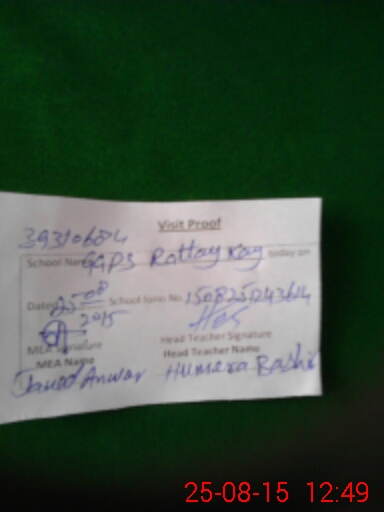 Visit Proof
39310684
School Name GGPS Rattay Kay today on
Dated 25-08-2015 School form No.
MEA Signature Head Teacher Signature
MEA Name Head Teacher Name
Anwar Humera Bashir
25-08-15 12:49